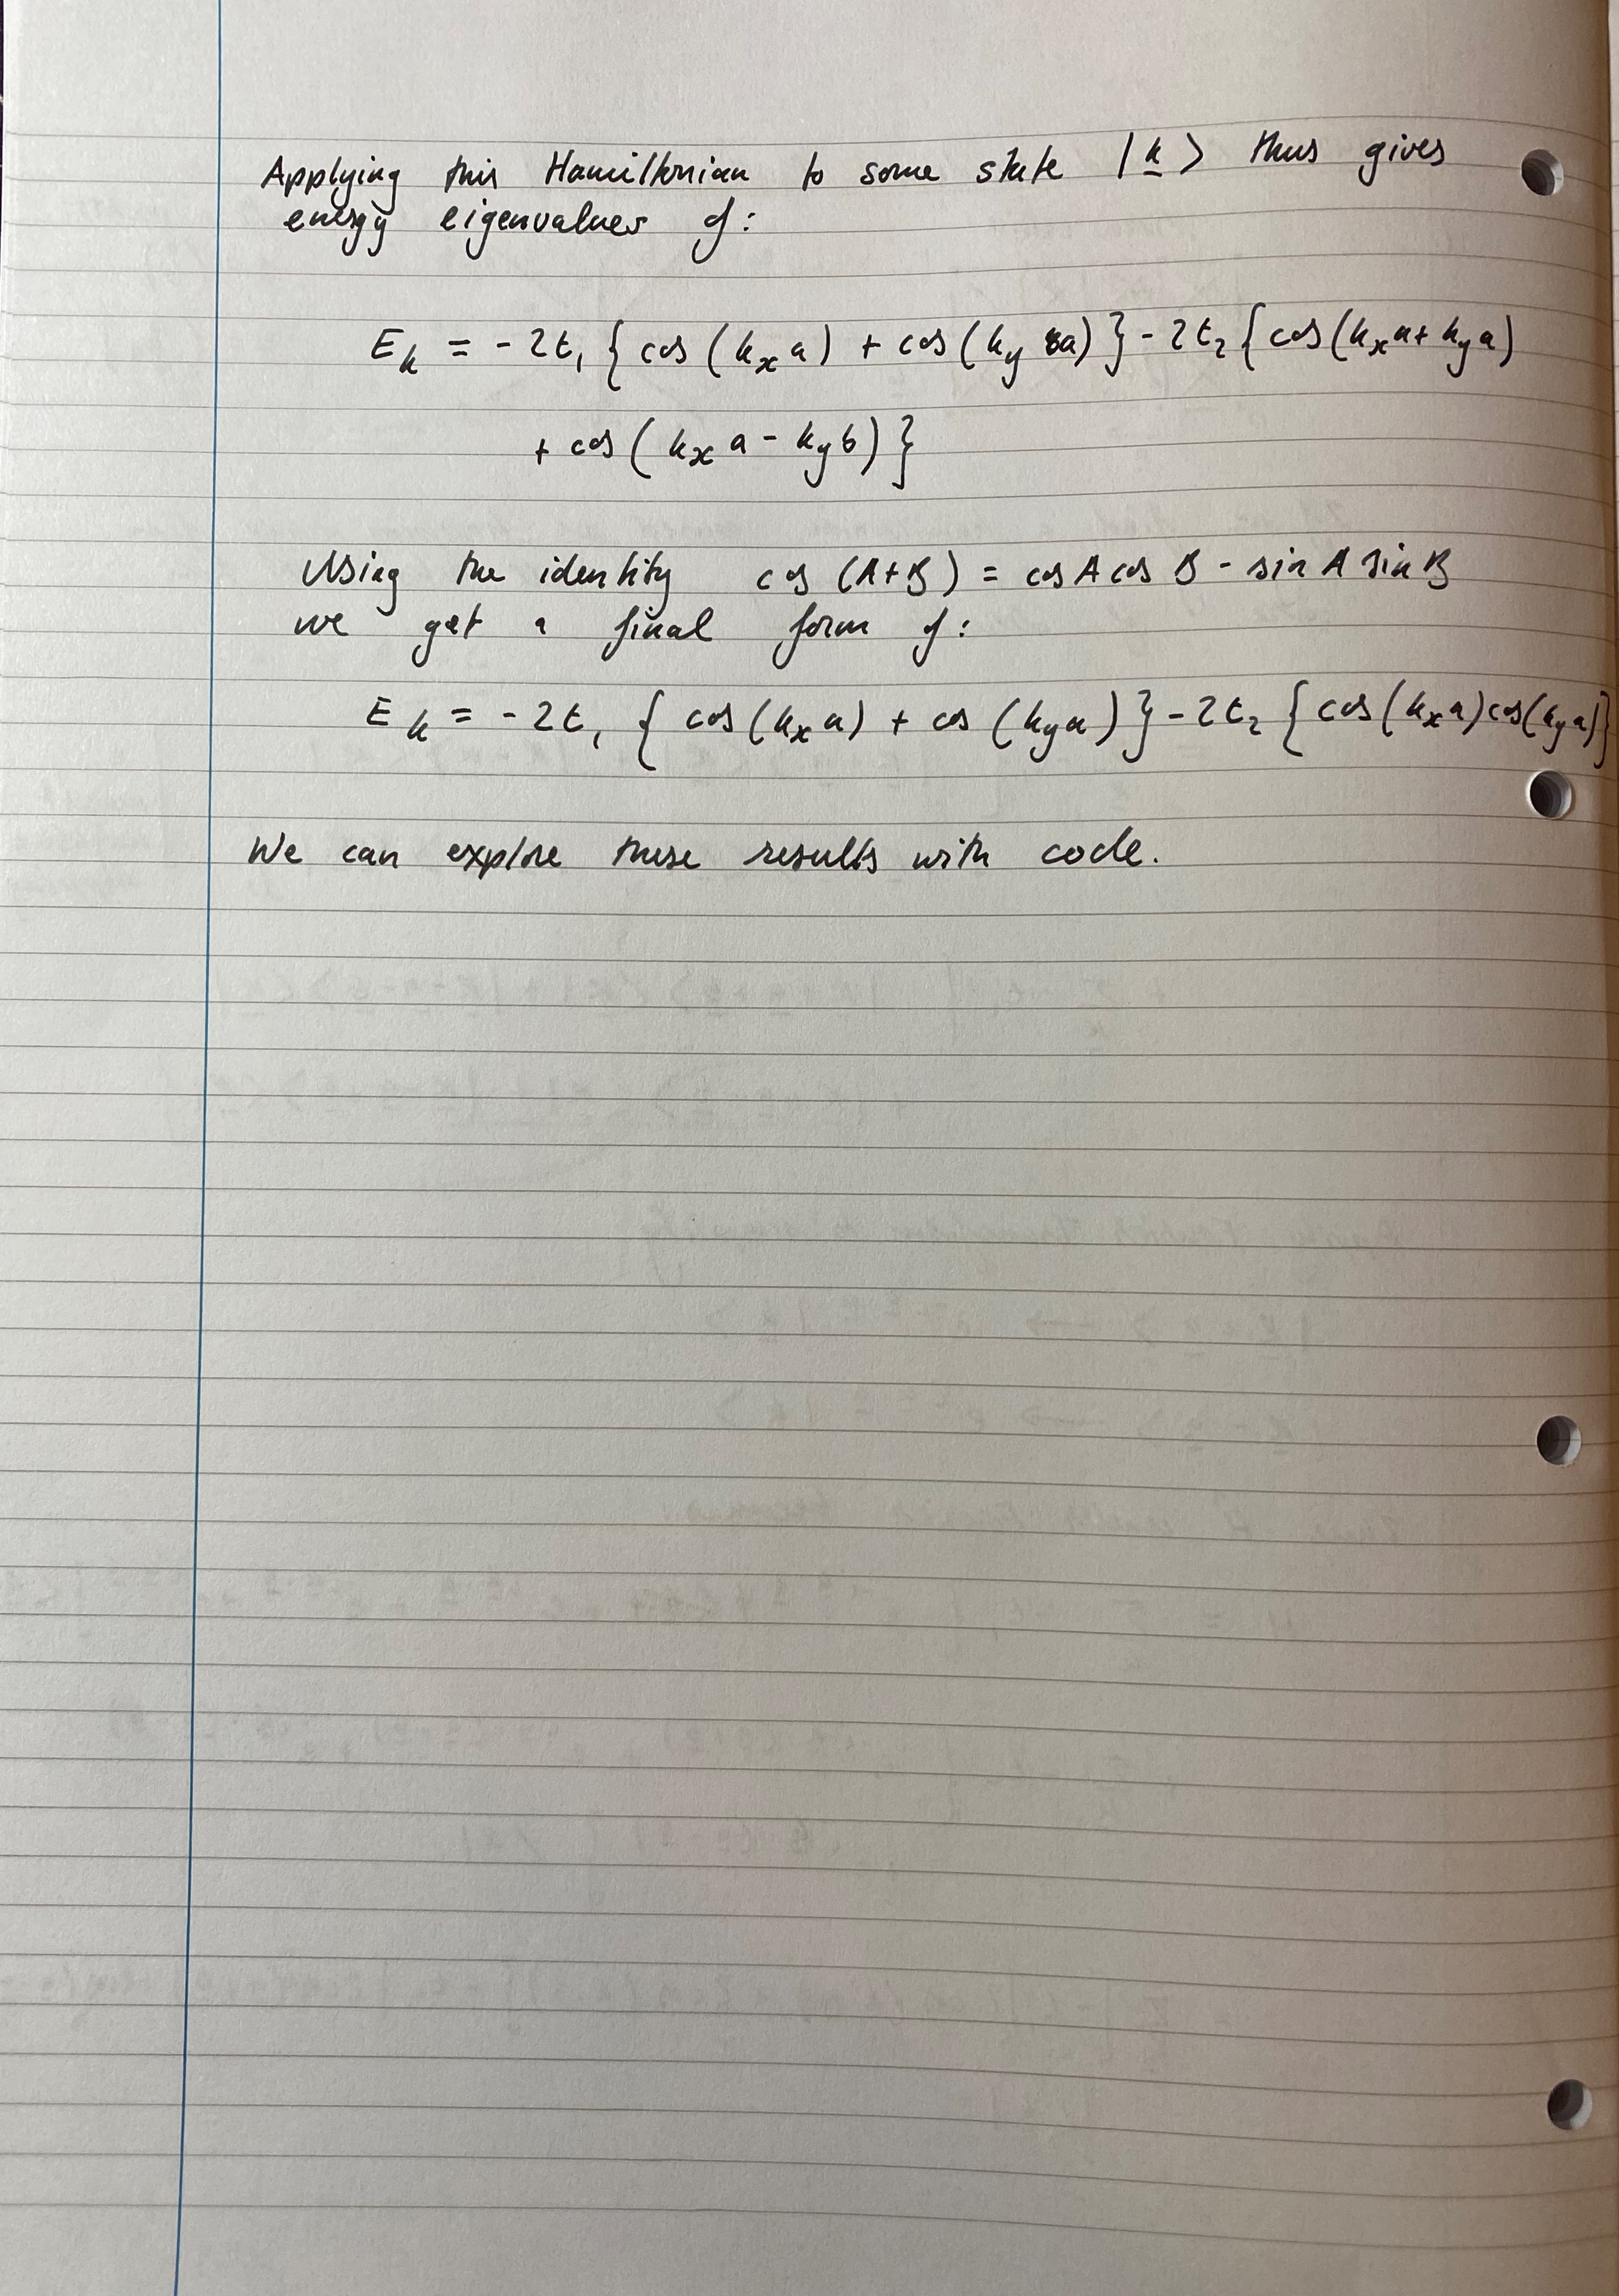 Applying this Hamiltonian to some state |k> thus gives
energy eigenvalues of:
E_k = - 2t₁ { cos (k_x a) + cos (k_y a) } - 2t₂ { cos (k_x a + k_y a)
+ cos ( k_x a - k_y b) }
Using the identity cos (A+B) = cos A cos B - sin A sin B
we get a final form of:
E_k = - 2t₁ { cos (k_x a) + cos (k_y a) } - 2t₂ { cos (k_x a) cos (k_y a) }
We can explore these results with code.